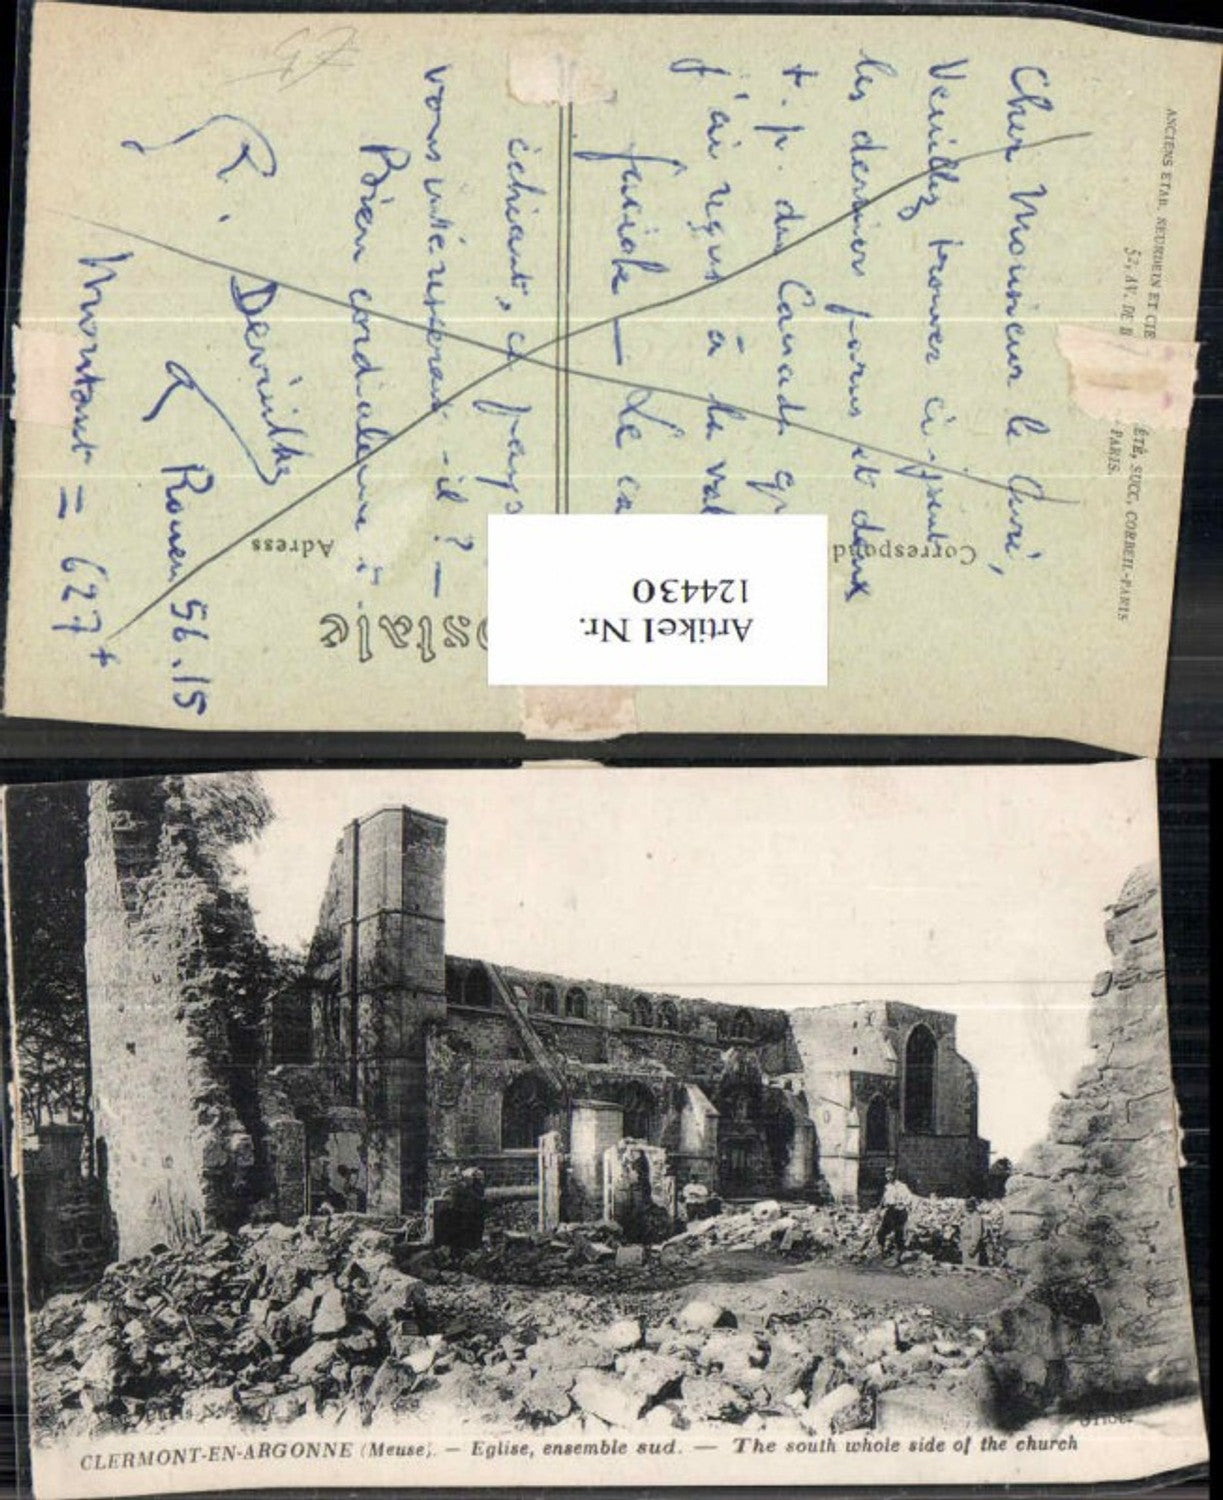 ANCIENS ETAB. NEURDEIN ET CIE
ÉTÉ, SUCC. CORBEIL-PARIS
52, AV. DE B
-PARIS.
Correspond
Adress
ostale
Artikel Nr.
124430
Cher Monsieur le Curé,
Veuillez trouver ci-joint
les derniers parus et deux
t. p. du Canada q
j'ai reçus à la val
faciale — Le ca
échéant, ce pays
vous intéresserait-il ? —
Bien cordialement
R. Derville
Rouen 56.15
Montant = 627+
CLERMONT-EN-ARGONNE (Meuse). — Eglise, ensemble sud. — The south whole side of the church